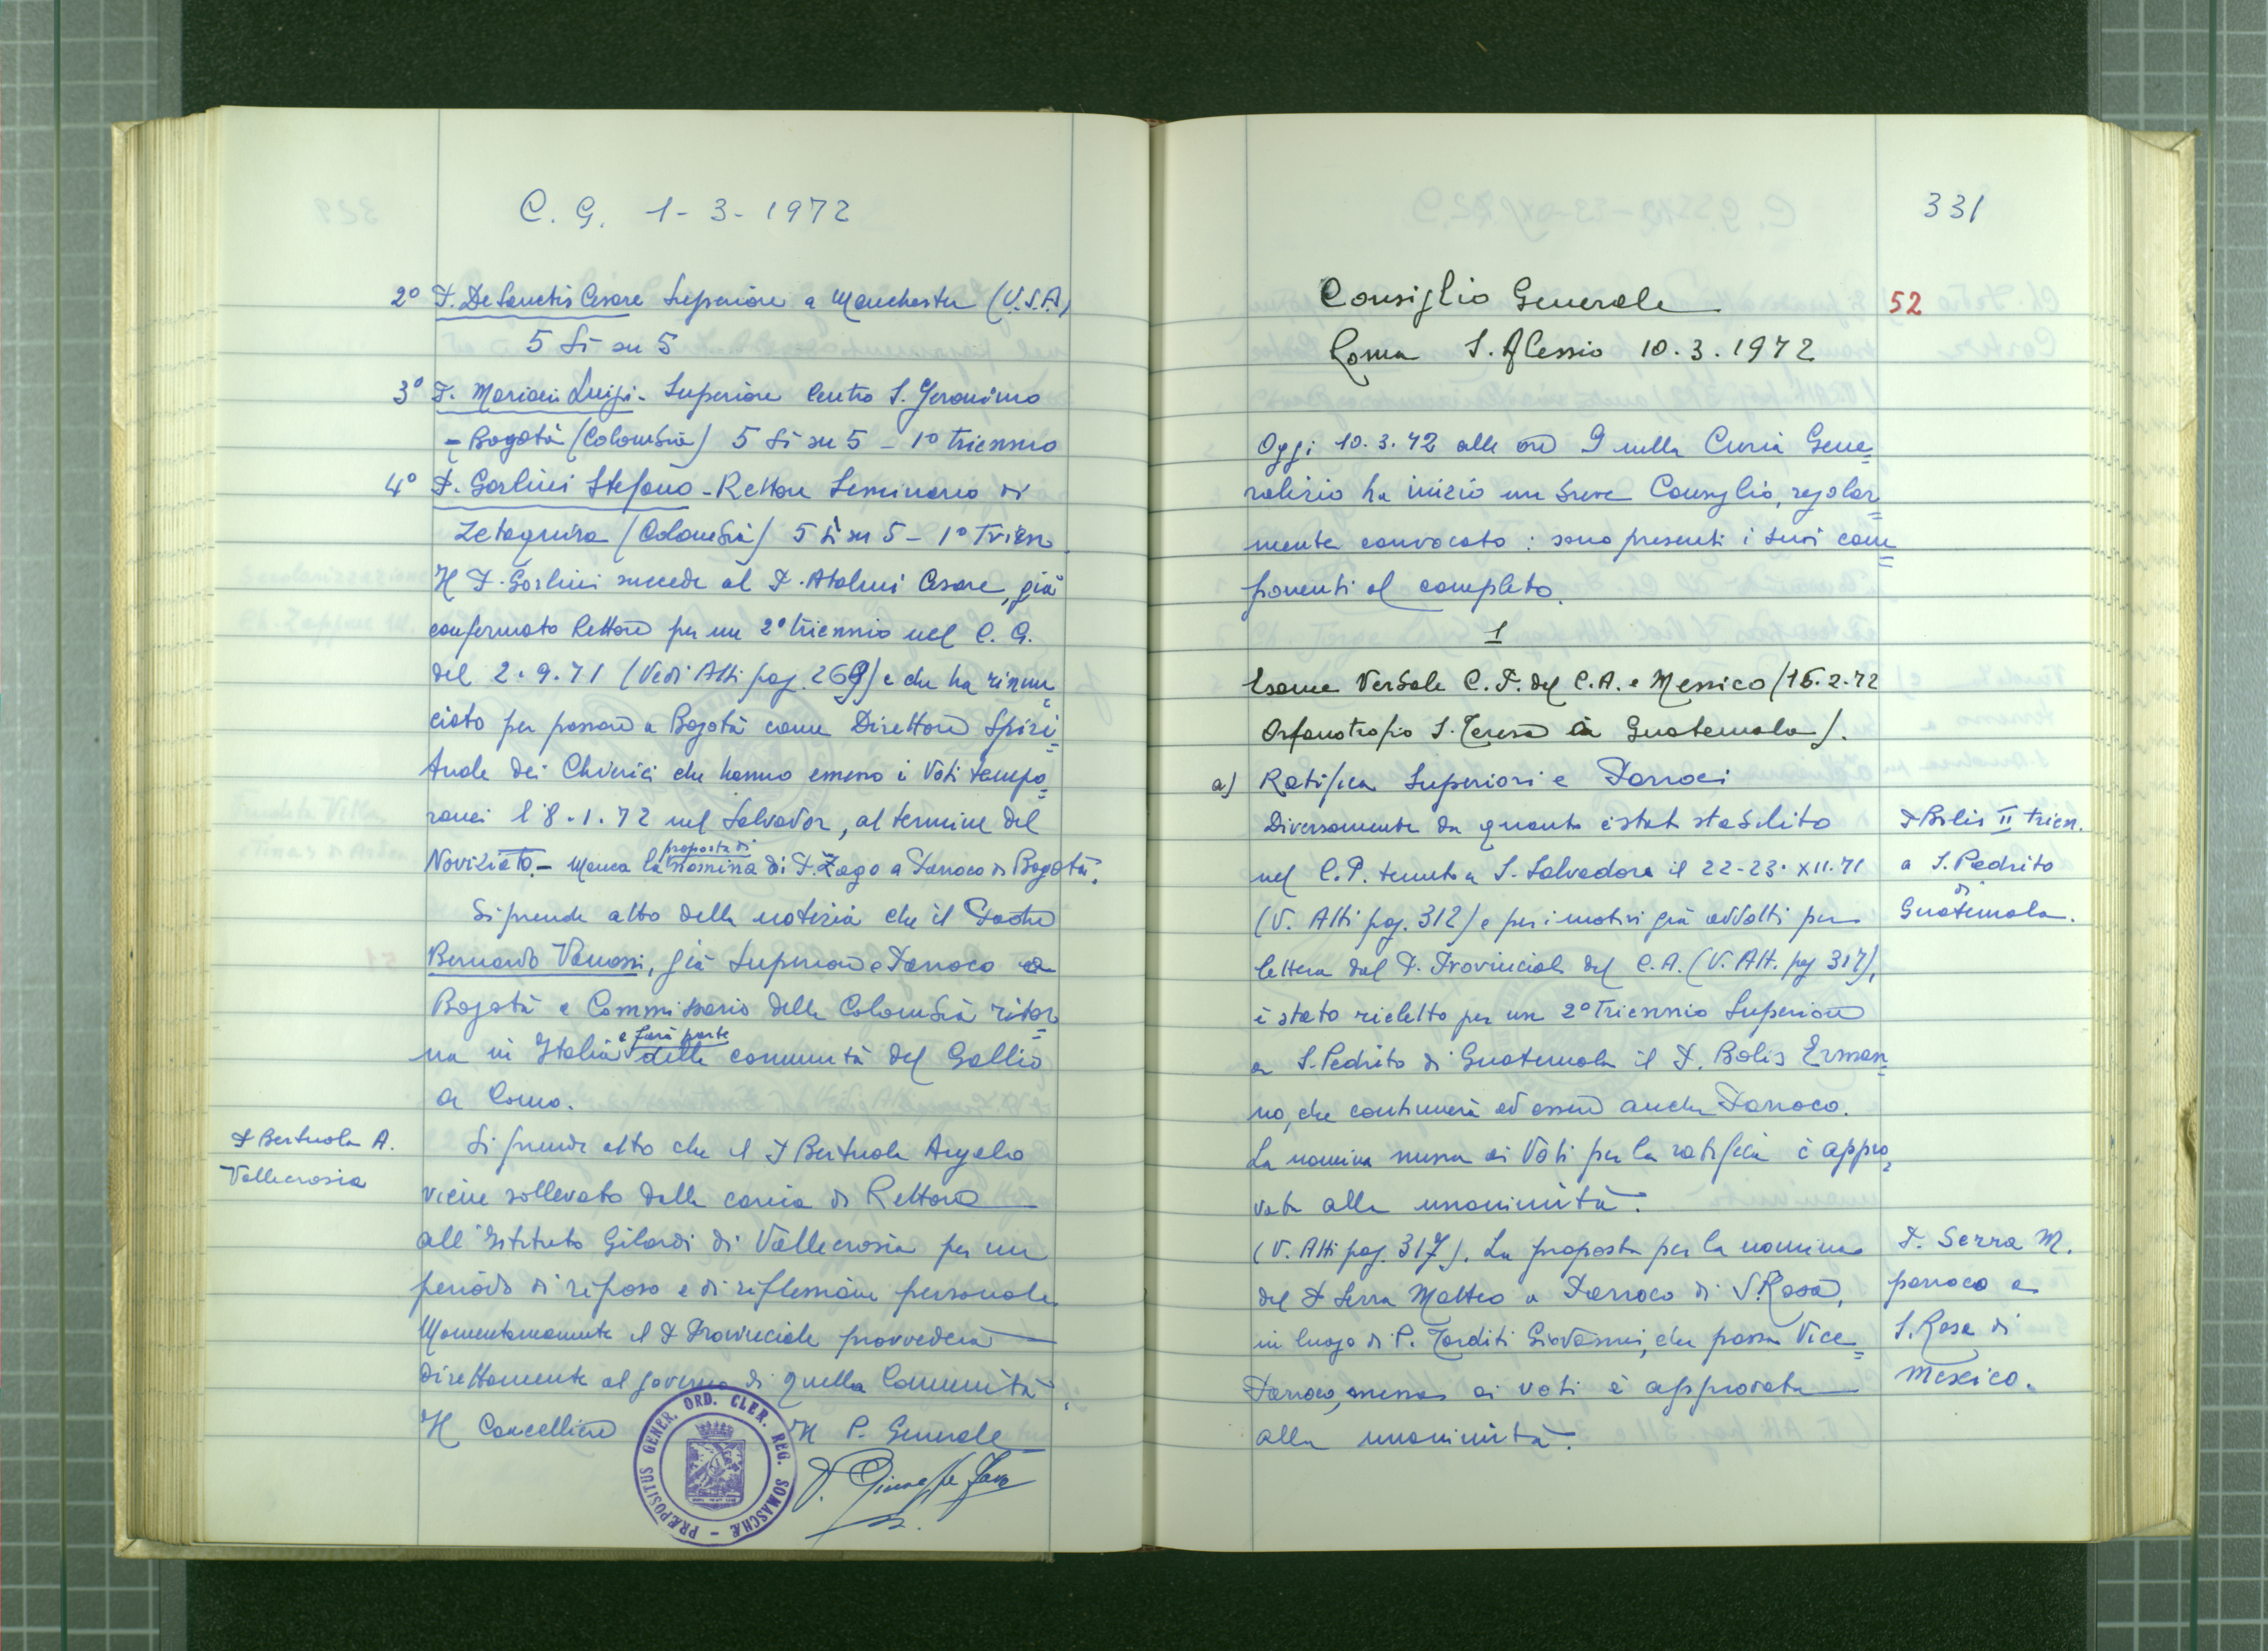 C. G. 1-3-1972
2° P. De Sanctis Cesare Superiore a Manchester (U.S.A)
5 sì su 5
3° P. Mariani Luigi - Superiore Centro S. Geronimo
- Bogotà (Colombia) 5 sì su 5 - 1° triennio
4° P. Gorlini Stefano - Rettore Seminario di
Zetaquira (Colombia) 5 sì su 5 - 1° Trien.
Il P. Gorlini succede al P. Atalmi Cesare, già
confermato Rettore per un 2° triennio nel C. G.
del 2.9.71 (Vedi Atti pag. 269) e che ha rinun=
ciato per passare a Bogotà come Direttore Spiri=
tuale dei Chierici che hanno emesso i Voti tempo=
ranei l'8.1.72 nel Salvador, al termine del
Noviziato. - Manca la proposta di nomina di P. Zago a Parroco di Bogotà.
Si prende atto della notizia che il Padre
Bernardo Vanossi, già Superiore e Parroco a
Bogotà e Commissario della Colombia ritor=
na in Italia e farà parte della comunità del Gallio
a Como.
P Bertuola A.
Vallecrosia
Si prende atto che il P Bertuola Angelo
viene sollevato dalla carica di Rettore
all'Istituto Gilardi di Vallecrosia per un
periodo di riposo e di riflessione personale.
Momentaneamente il P Provinciale provvederà
direttamente al governo di quella Comunità.
Il Cancelliere Il P. Generale
PRÆPOSITUS GENER. ORD. CLER. REG. SOMASCHÆ -
P. Giuseppe Fava
331
Consiglio Generale 52
Roma S. Alessio 10.3.1972
Oggi 10.3.72 alle ore 9 nella Curia Gene=
ralizia ha inizio un breve Consiglio, regolar=
mente convocato: sono presenti i suoi com=
ponenti al completo.
1
Esame Verbale C. P. del C.A. e Messico (16.2.72
Orfanotrofio S. Teresa in Guatemala).
a) Ratifica Superiori e Parroci
Diversamente da quanto è stato stabilito
nel C.P. tenuto a S. Salvadore il 22-23.XII.71
(V. Atti pag. 312) e per i motivi già addotti per
lettera dal P. Provinciale del C.A. (V. Att. pag 317),
è stato rieletto per un 2° Triennio Superiore
a S. Pedrito di Guatemala il P. Bolis Erman=
no, che continuerà ad essere anche Parroco.
La nomina messa ai Voti per la ratifica è appro=
vata alla unanimità.
P Bolis II trien.
a S. Pedrito
di
Guatemala.
(V. Atti pag. 317). La proposta per la nomina
del P Serra Matteo a Parroco di S. Rosa,
in luogo di P. Tarditi Giovanni, che passa Vice=
Parroco, messa ai voti è approvata
alla unanimità.
P. Serra M.
parroco a
S. Rosa di
Mexico.